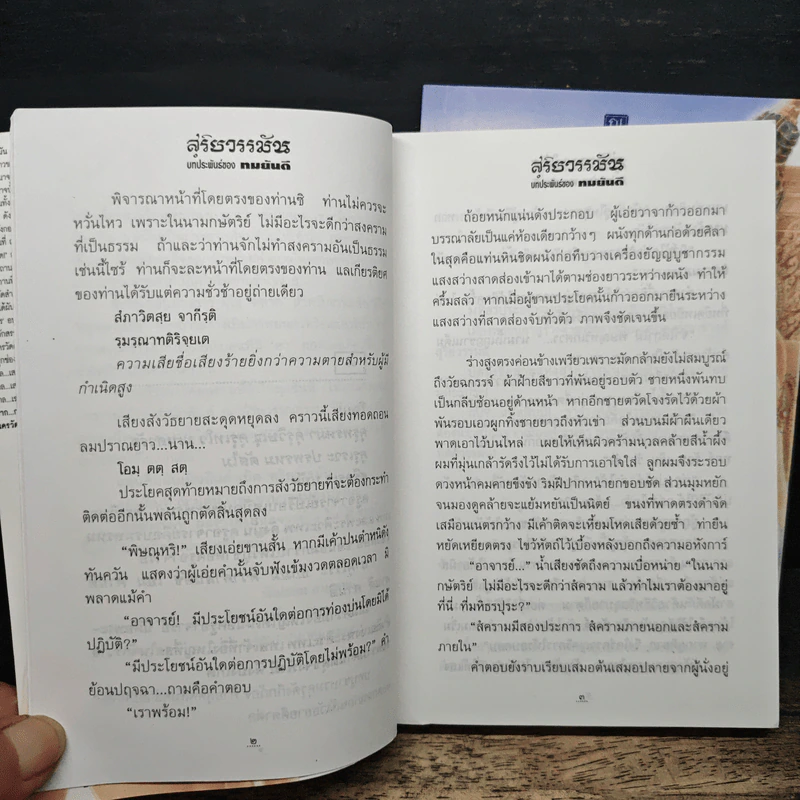 สุริยวรรมัน
บทประพันธ์ของ ทมยันตี
พิจารณาหน้าที่โดยตรงของท่านซิ ท่านไม่ควรจะ
หวั่นไหว เพราะในนามกษัตริย์ ไม่มีอะไรจะดีกว่าสงคราม
ที่เป็นธรรม ถ้าและว่าท่านจักไม่ทำสงครามอันเป็นธรรม
เช่นนี้ไซร้ ท่านก็จะละหน้าที่โดยตรงของท่าน แลเกียรติยศ
ของท่านได้รับแต่ความชั่วช้าอยู่ถ่ายเดียว
สํภาวิตสฺย จากีรฺติ
รฺมรฺณาทติริจฺยเต
ความเสียชื่อเสียงร้ายยิ่งกว่าความตายสำหรับผู้มี
กำเนิดสูง
เสียงสังวัธยายสะดุดหยุดลง คราวนี้เสียงทอดถอน
ลมปราณยาว...นาน...
โอมฺ ตตฺ สตฺ
ประโยคสุดท้ายหมายถึงการสังวัธยายที่จะต้องกระทำ
ติดต่ออีกนั้นพลันถูกตัดสิ้นสุดลง
“พิษณุหริ!” เสียงเอ่ยขานสั้น หากมีเค้าปนตำหนิดัง
ทันควัน แสดงว่าผู้เอ่ยคำนั้นจับฟังเข้มงวดตลอดเวลา มิ
พลาดแม้คำ
“อาจารย์! มีประโยชน์อันใดต่อการท่องบ่นโดยมิได้
ปฏิบัติ?”
“มีประโยชน์อันใดต่อการปฏิบัติโดยไม่พร้อม?” คำ
ย้อนปฤจฉา...ถามคือคำตอบ
“เราพร้อม!”
๒
สุริยวรรมัน
บทประพันธ์ของ ทมยันตี
ถ้อยหนักแน่นดังประกอบ ผู้เอ่ยวาจาก้าวออกมา
บรรณาลัยเป็นแค่ห้องเดียวกว้างๆ ผนังทุกด้านก่อด้วยศิลา
ในสุดคือแท่นหินชิดผนังก่อทึบวางเครื่องยัญญบูชากรรม
แสงสว่างสาดส่องเข้ามาได้ตามช่องยาวระหว่างผนัง ทำให้
ครึ้มสลัว หากเมื่อผู้ขานประโยคนั้นก้าวออกมายืนระหว่าง
แสงสว่างที่สาดส่องจับทั่วตัว ภาพจึงชัดเจนขึ้น
ร่างสูงตรงค่อนข้างเพรียวเพราะมัดกล้ามยังไม่สมบูรณ์
ถึงวัยฉกรรจ์ ผ้าฝ้ายสีขาวที่พันอยู่รอบตัว ชายหนึ่งพันทบ
เป็นกลีบซ้อนอยู่ด้านหน้า หากอีกชายตวัดโจงรัดไว้ด้วยผ้า
พันรอบเอวผูกทิ้งชายยาวถึงหัวเข่า ส่วนบนมีผ้าผืนเดียว
พาดเอาไว้บนไหล่ เผยให้เห็นผิวคร้ามนวลคล้ายสีน้ำผึ้ง
ผมที่มุ่นเกล้ารัดรึงไว้ไม่ได้รับการเอาใจใส่ ลูกผมจึงระรอบ
ดวงหน้าคมคายขึงขัง ริมฝีปากหนายกขอบชัด ส่วนมุมหยัก
จนมองดูคล้ายจะแย้มหยันเป็นนิตย์ ขนงที่พาดตรงดำจัด
เสมือนเนตรกว้าง มีเค้าติดจะเหี้ยมโหดเสียด้วยซ้ำ ท่ายืน
หยัดเหยียดตรง ไขว้หัตถ์ไว้เบื้องหลังบอกถึงความอหังการ์
“อาจารย์...” น้ำเสียงชัดถึงความเบื่อหน่าย “ในนาม
กษัตริย์ ไม่มีอะไรจะดีกว่าสํคราม แล้วทำไมเราต้องมาอยู่
ที่นี่ ที่มหิธรปุระ?”
“สํครามมีสองประการ สํครามภายนอกและสํคราม
ภายใน”
คำตอบยังราบเรียบเสมอต้นเสมอปลายจากผู้นั่งอยู่
๓